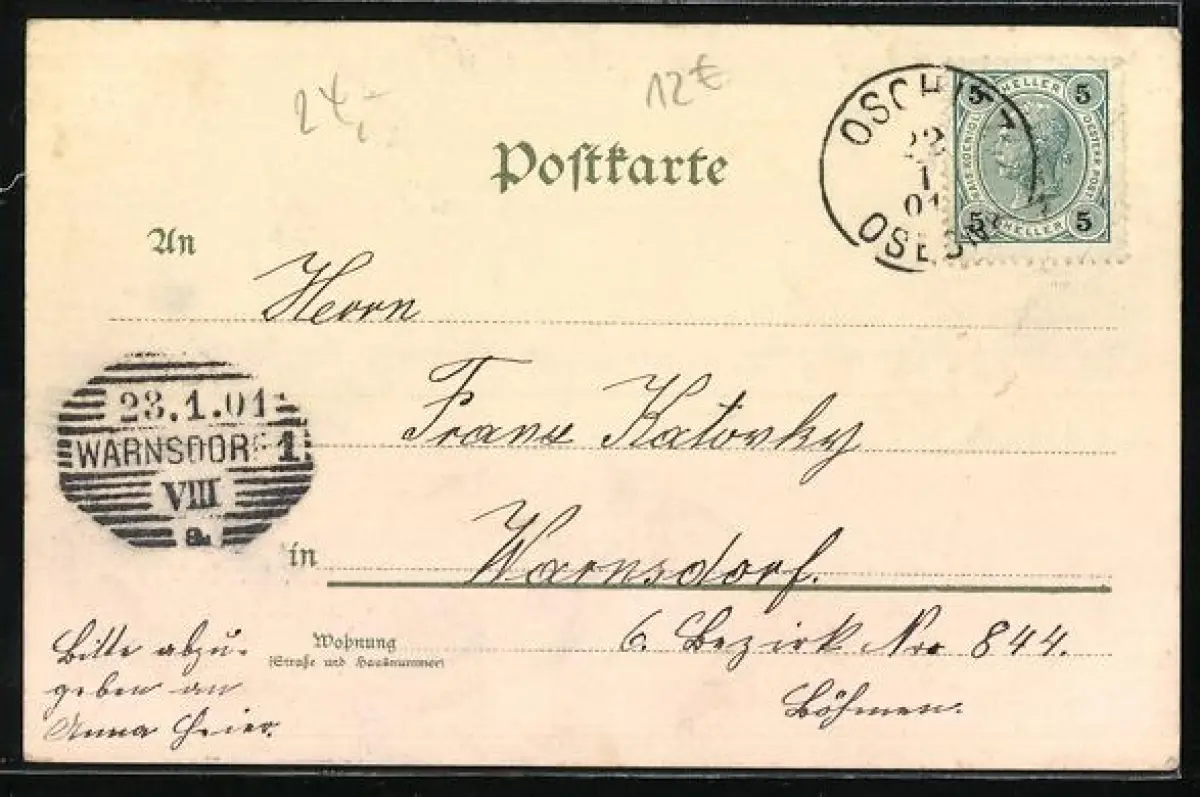 24,-
12€
Postkarte
OSCHITZ
22
1
01
OSEČNÁ
5 HELLER 5
KAIS. KOENIGL. OESTERR. POST
5 HELLER 5
An
Herrn
23.1.01
WARNSDORF 1
VIII
a.
Franz Katovky
in
Warnsdorf.
Wohnung
(Straße und Hausnummer)
6. Bezirk Nro 844.
Böhmen.
Bitte abzu-
geben an
Anna